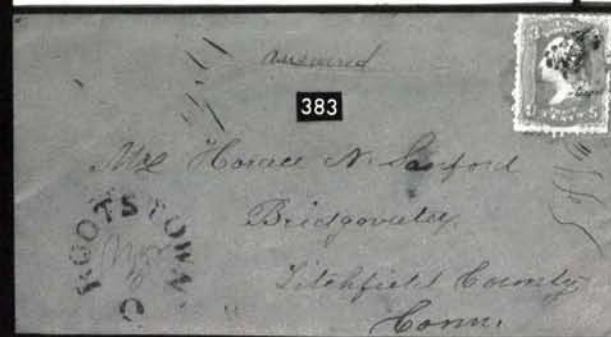 answered
383
Mrs Horace N. Sanford
Bridgewater
Litchfield County
Conn.
ROOTSTOWN O